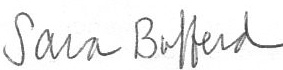 Sara Bufferd